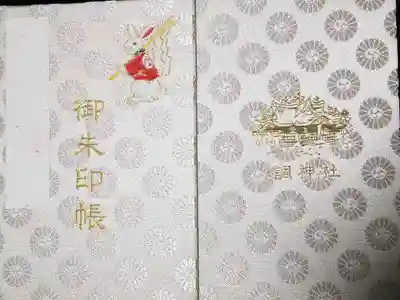 御朱印帳
調神社